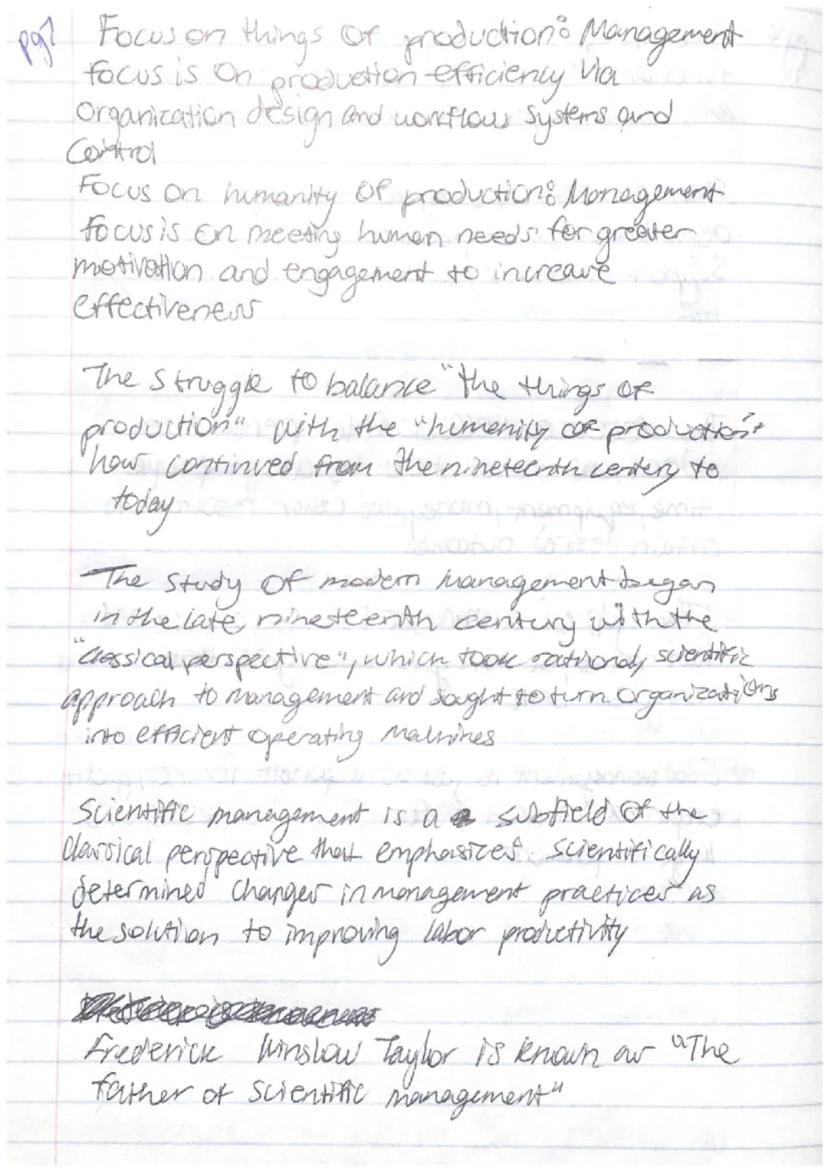 pg7
Focus on things of production: Management
focus is on production efficiency via
organization design and workflow systems and
Control
Focus on humanity of production: Management
focus is on meeting human needs for greater
motivation and engagement to increase
effectiveness
The struggle to balance "the things of
production" with the "humanity of production"
has continued from the nineteenth century to
today
The study of modern management began
in the late nineteenth century with the
"classical perspective", which took rational, scientific
approach to management and sought to turn organizations
into efficient operating machines
Scientific management is a subfield of the
Classical perspective that emphasizes scientifically
determined changes in management practices as
the solution to improving labor productivity
Frederick Winslow Taylor is known as "The
father of scientific management"